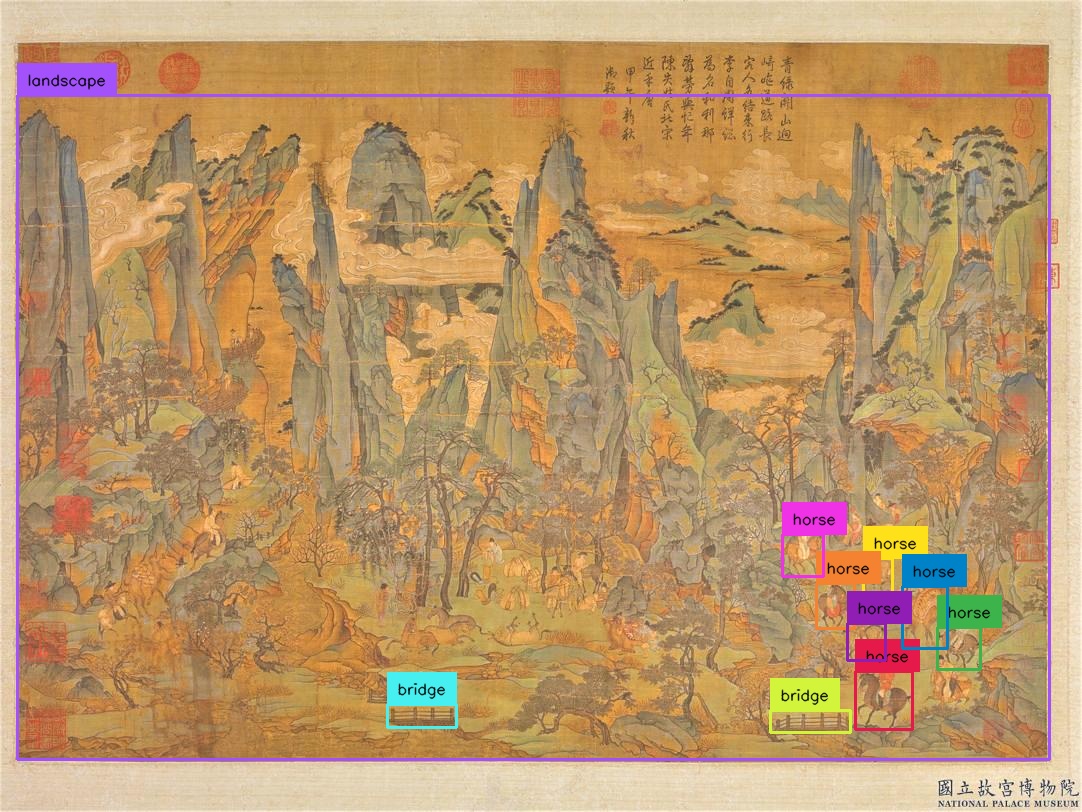 landscape
青綠關山迥
崎嶇道路長
客人各結束行
李自周詳總
為名和利那
辭勞與忙年
陳失姓氏北宋
近乎唐
甲午新秋
御題
horse
horse
horse
horse
horse
horse
horse
bridge
bridge
國立故宮博物院
NATIONAL PALACE MUSEUM